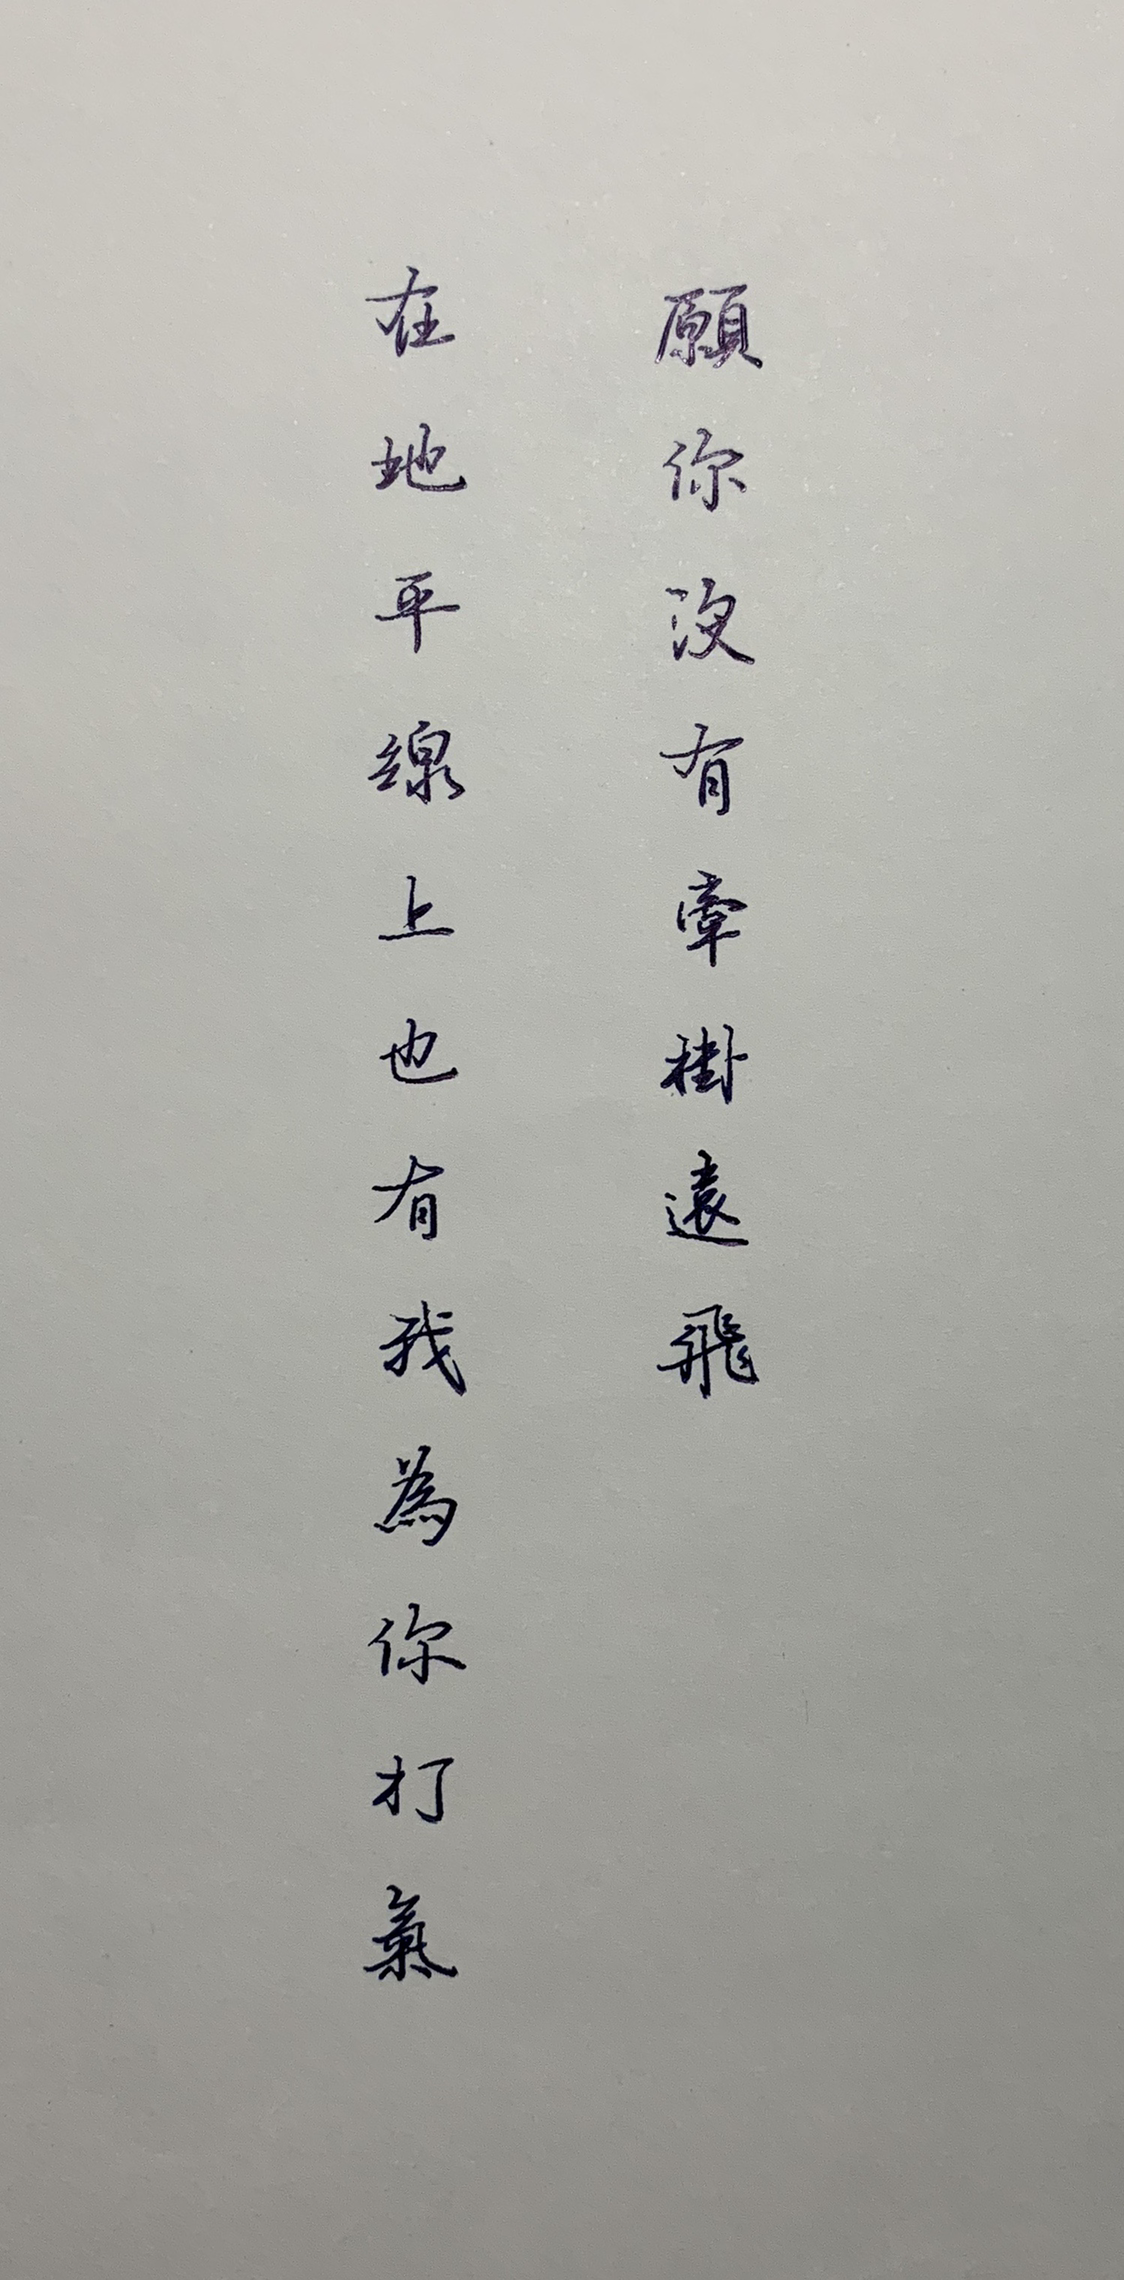 願你沒有牽掛遠飛
在地平線上也有我為你打氣